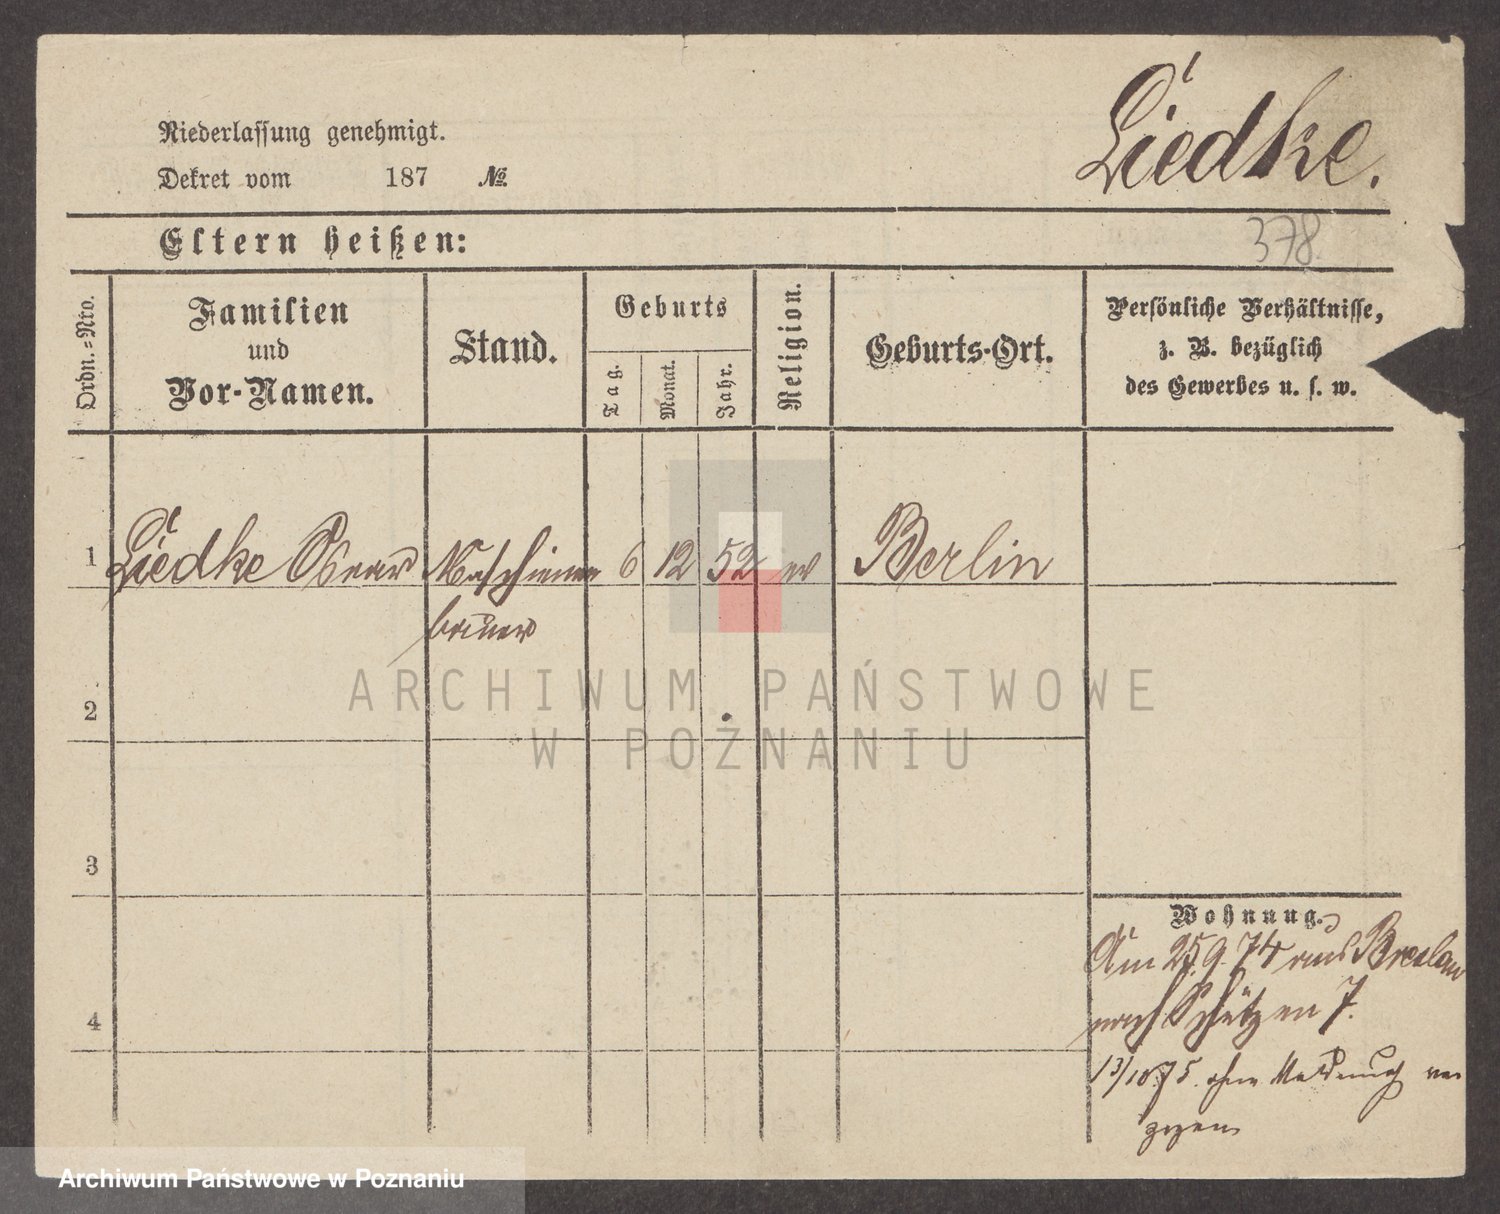 Liedke.
Niederlassung genehmigt.
Dekret vom 187 №
378.
Eltern heißen:
Ordn.-Nro.
Familien
und
Vor-Namen.
Stand.
Geburts
Tag.
Monat.
Jahr.
Religion.
Geburts-Ort.
Persönliche Verhältnisse,
z. B. bezüglich
des Gewerbes u. s. w.
1 Liedke Oscar Maschienen 6 12 52 ev Berlin
bauer
2
3
4
Wohnung.
Am 25.9.74 aus Breslau
nach Schützen 7.
13/10.75. ohne Meldung ver
zogen
ARCHIWUM PAŃSTWOWE
W POZNANIU
Archiwum Państwowe w Poznaniu